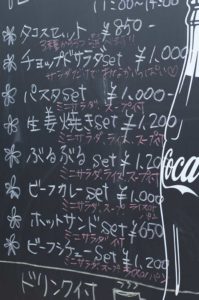 11:00~14:00
タコスセット ¥850-
チョップドサラダset ¥1,000
サラダだけでおなかいっぱい♡
パスタset ¥1,000-
ミニサラダ、スープ付
生姜焼きset ¥1,200
ミニサラダ、ライス、スープ付
ぷるぷるset ¥1,200
ミニサラダ、ライス、スープ付
ビーフカレーset ¥1,000
ミニサラダ、スープ付
ホットサンドset ¥650
ミニサラダ付
ビーフシチューset ¥1,200
ミニサラダ、スープ
ドリンク付
Coca